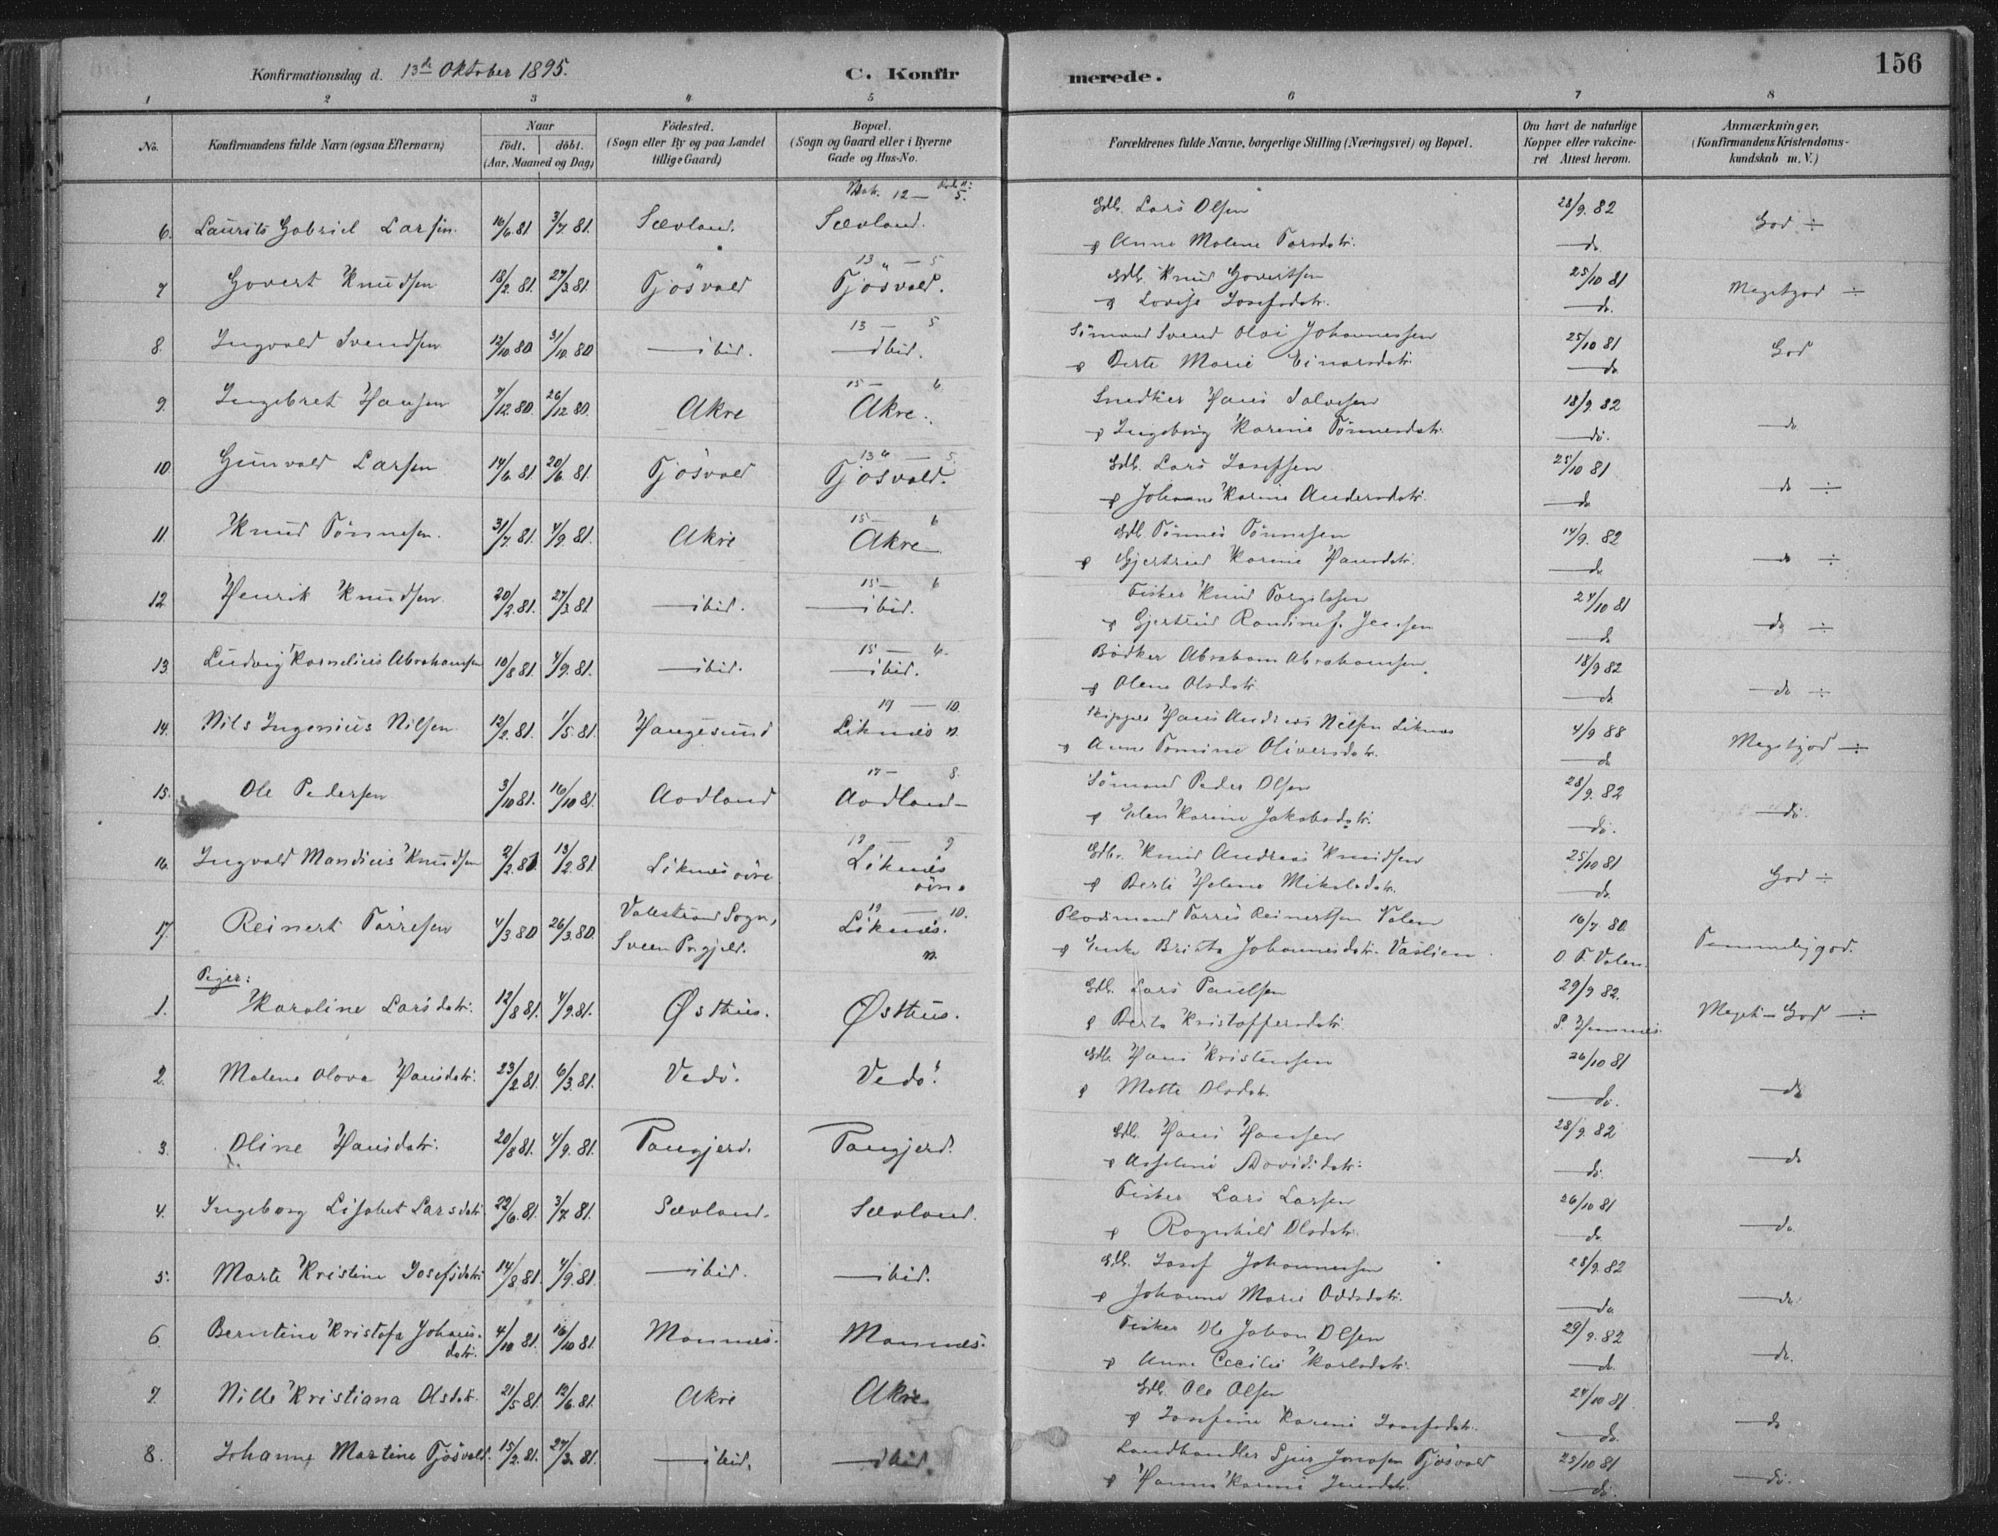 156
Konfirmationsdag d. 13de Oktober 1895.
C. Konfirmerede.
1 2 3 4 5 6 7 8
No. Konfirmandens fulde Navn (ogsaa Efternavn) Naar födt. döbt. (Aar, Maaned og Dag) Födested. (Sogn eller By og paa Landet tillige Gaard) Bopæl. (Sogn og Gaard eller i Byerne Gade og Hus-No. Forældrenes fulde Navne, borgerlige Stilling (Næringsvei) og Bopæl. Om havt de naturlige Kopper eller vakcineret Attest herom. Anmærkninger. (Konfirmandens Kristendomskundskab m. V.)
Matr. 12 — 5.
6. Laurits Gabriel Larsen. 16/6 81 3/7 81. Sævland. Sævland. Gdb. Lars Olsen 28/9. 82 God ÷
& Anne Malene Larsdatr. do
13 " — 5
7 Govert Knudsen 18/2. 81. 27/3. 81. Tjösvold Tjösvold. Gdb. Knud Govertsen 25/10 81 Megetgod ÷
& Lovise Josefsdatr. do.
13 — 5
8. Ingvald Svendsen 12/10 80 31/10. 80 — ibid. — ibid. Sömand Svend Olai Johannessen 25/10 81 God
& Berte Marie Einarsdatr do
15 — 6
9. Ingebret Hansen 7/12. 80. 26/12 80. Akre Akre. Snedker Hans Salvesen 18/9. 82 do
& Ingeborg Karine Tönnesdatr. do.
13 " — 5.
10. Gunvald Larsen 14/6. 81. 20/6 81. Tjösvold Tjösvold. Gdb. Lars Josefsen 25/10 81 do ÷
& Johanne Karine Andersdatr. do
15 — 6
11. Knud Tönnesen. 31/7. 81. 4/9. 81. Akre Akre Gdb. Tönnes Tönnesen 14/9. 82 do ÷
& Gjertrud Karine Hansdatr. do
15 — 6
12. Henrik Knudsen 20/2. 81. 27/3. 81 — ibid. — ibid. Fisker Knud Torgilssen 24/10 81 do ÷
& Gjertrud Randine f. do
15 — 6.
13. Ludvig Kornelius Abrahamsen 10/8 81 4/9. 81. — ibid. — ibid. Bödker Abraham Abrahamsen 18/9 82 do ÷
& Olene Olsdatr do
19 — 10.
14. Nils Ingenius Nilsen 12/2. 81. 1/5. 81. Haugesund Liknes n. Skipper Hans Andreas Nilsen Liknes 4/9 88 Megetgod ÷
& Anne Tomine Oliversdatr. do
17 — 8.
15. Ole Pedersen 3/10 81. 16/10 81. Aodland Aodland — Sömand Peder Olsen 28/9. 82 do.
& Elen Karine Jakobsdatr. do.
19 — 9
16. Ingvald Mandius Knudsen 2/2. 81 13/2. 81 Liknes övre Liknes övre Gdbr. Knud Andreas Knudsen 25/10 81 God ÷
& Berte Helene Mikalsdatr. do
19 — 10.
17. Reinert Torresen 4/3 80 26/3. 80 Valestrand Sogn, Sveen Prgjeld. Liknes. n. Plodsmand Torris Reinertsen Valen 16/7 80 Temmeliggod.
& Brithe Johannesdatr. O. T. Valen.
Piger:
1. Karoline Larsdatr. 12/8 81. 4/9. 81. Østhus. Østhus. Gdb. Lars Paulsen 29/9 82. Meget-God ÷
& Berta Kristoffersdatr.
2. Malene Olova Hansdatr. 23/2 81. 6/3. 81. Vedö. Vedö. Gdb. Hans Kristensen 26/10 81 do
& Mette Olsdatr. do.
3. Oline Hansdatr. 20/8 81. 4/9. 81. Tangjerd. Tangjerd. Gdb. Hans Hansen 28/9. 82 do
& Asseline Davidsdatr. do.
4. Ingeborg Lisabet Larsdatr. 22/6. 81. 3/7. 81. Sævland. Sævland. Fisker Lars Larsen 26/10 81 do
& Ragnhild Olsdatr. do
5. Marte Kristine Josefsdatr 14/8 81. 4/9. 81. — ibid. — ibid. Gdb. Josef Johannessen 28/9. 82 do
& Johanne Marie Oddsdatr. do
6 Berntine Kristofa Johansdatr. 4/10 81. 16/10 81. Mannes. Mannes. Fisker Ole Johan Olsen 29/9. 82 do.
& Anne Cecilie Karlsdatr. do.
7. Nille Kristiana Olsdatr. 21/5 81. 12/6. 81. Akre Akre Gdb. Ole Olsen 24/10 81 do
& Josefine Karine Josefsdatr. do.
8. Johanne Martine Tjösvold. 15/2. 81. 27/3. 81. — ibid. — ibid. Landhandler Sjur Jonasen Tjösvold 25/10 81 do.
& Hanne Karine do.